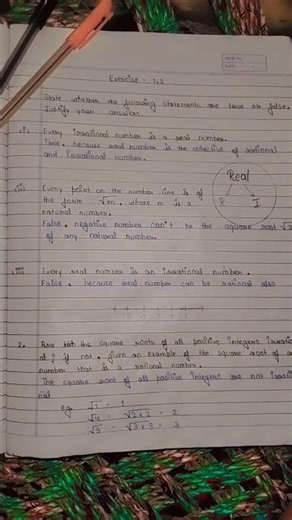 Exercise - 1.2
State whether the following statements are true or false.
Justify your answers.
(i) Every irrational number is a real number.
True. because real number is the collective of rational
and irrational number.
Real
R I
(ii) Every point on the number line is of
the form √m, where m is a
natural number.
False. negative number can't be the square root
of any natural number.
(iii) Every real number is an irrational number.
False. because real number can be rational also
2. Are the square roots of all positive integers irration
al? if not, given an example of the square root of a
number that is a rational number.
The square root of all positive integers are not
eg. √1 = 1
√4 = √2×2 = 2
= √3×3 = 3